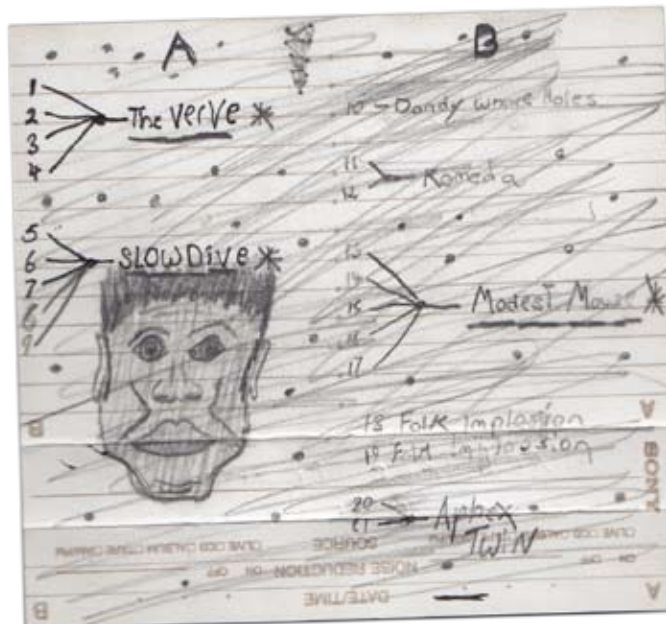 A
1
2
3
4
The Verve *
5
6
7
8
9
SLOWDive *
B
10 - Dandy
11
12
Komeda
13
14
15
16
17
Modest Mouse *
18 Folk Implosion
19 Folk Implosion
20
21
Aphex
Twin
B
A
SONY
SOURCE
ON OFF
NOISE REDUCTION
ON OFF
DATE/TIME
B
A